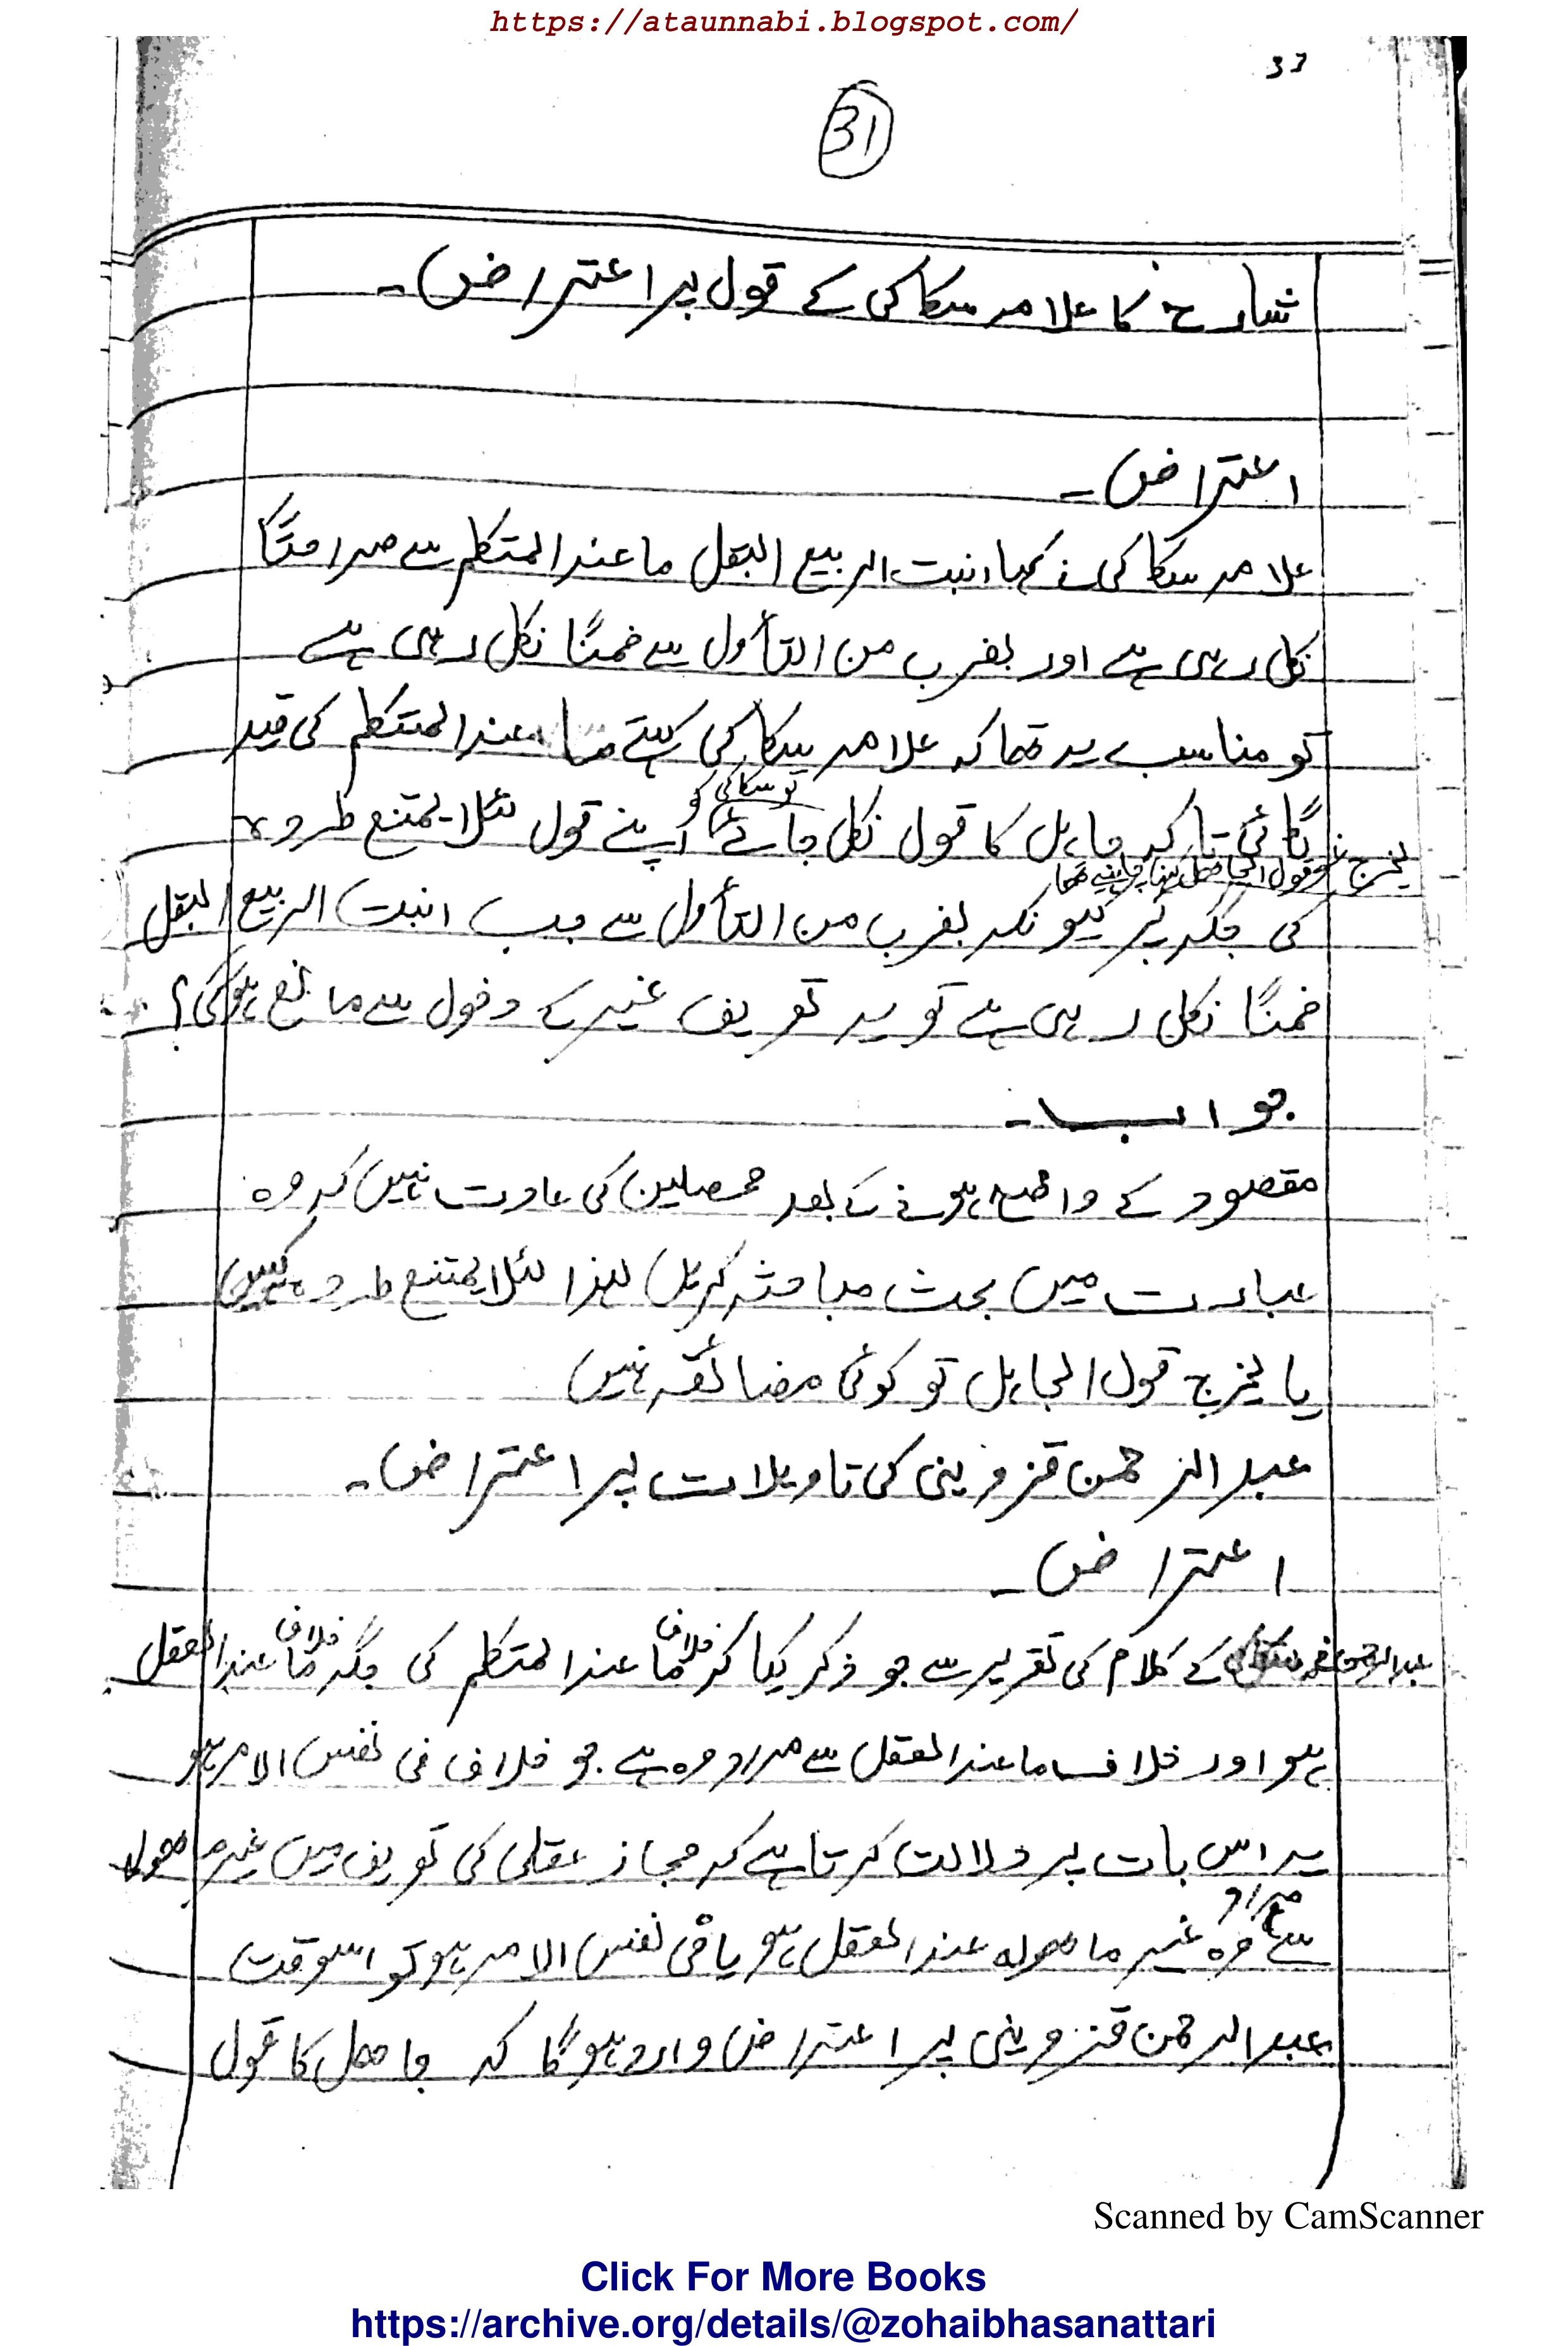 https://ataunnabi.blogspot.com/
37
31
شارح کا علامہ سکاکی کے قول پر اعتراض۔
اعتراض۔
علامہ سکاکی نے کہا انبت الربیع البقل ما عند المتکلم سے صراحتًا
نکل رہی ہے اور بضرب من التأول سے ضمنًا نکل رہی ہے
تو مناسب یہ تھا کہ علامہ سکاکی کہتے ما عند المتکلم کی قید
لگائی تاکہ جاہل کا قول نکل جائے تو سکاکی کو اپنے قول لئلا یمتنع طردہ
لیخرج نحو قول الجاھل کہنا چاہیے تھا
کی جگہ پر کیونکہ بضرب من التأول سے جب انبت الربیع البقل
ضمنًا نکل رہی ہے تو یہ تعریف غیر کے دخول سے مانع ہوگی؟
جواب۔
مقصود کے واضح ہونے کے بعد محصلین کی عادت نہیں کہ وہ
عبارت میں بحث مباحثہ کریں لہذا لئلا یمتنع طردہ کہیں
یا لیخرج قول الجاہل تو کوئی مضائقہ نہیں
عبد الرحمن قزوینی کی تاویلات پر اعتراض۔
اعتراض۔
عبد الرحمن نے سکاکی کے کلام کی تقریر سے جو ذکر کیا کہ خلاف ما عند المتکلم کی جگہ خلاف ما عند العقل
ہو اور خلاف ما عند العقل سے مراد وہ ہے جو خلاف فی نفس الامر ہو
یہ اس بات پر دلالت کرتا ہے کہ مجاز عقلی کی تعریف میں غیر ما ھولہ
سے مراد وہ غیر ما ھولہ عند العقل ہو یا فی نفس الامر ہو تو اسوقت
عبد الرحمن قزوینی پر اعتراض وارد ہوگا کہ جاھل کا قول
Scanned by CamScanner
Click For More Books
https://archive.org/details/@zohaibhasanattari